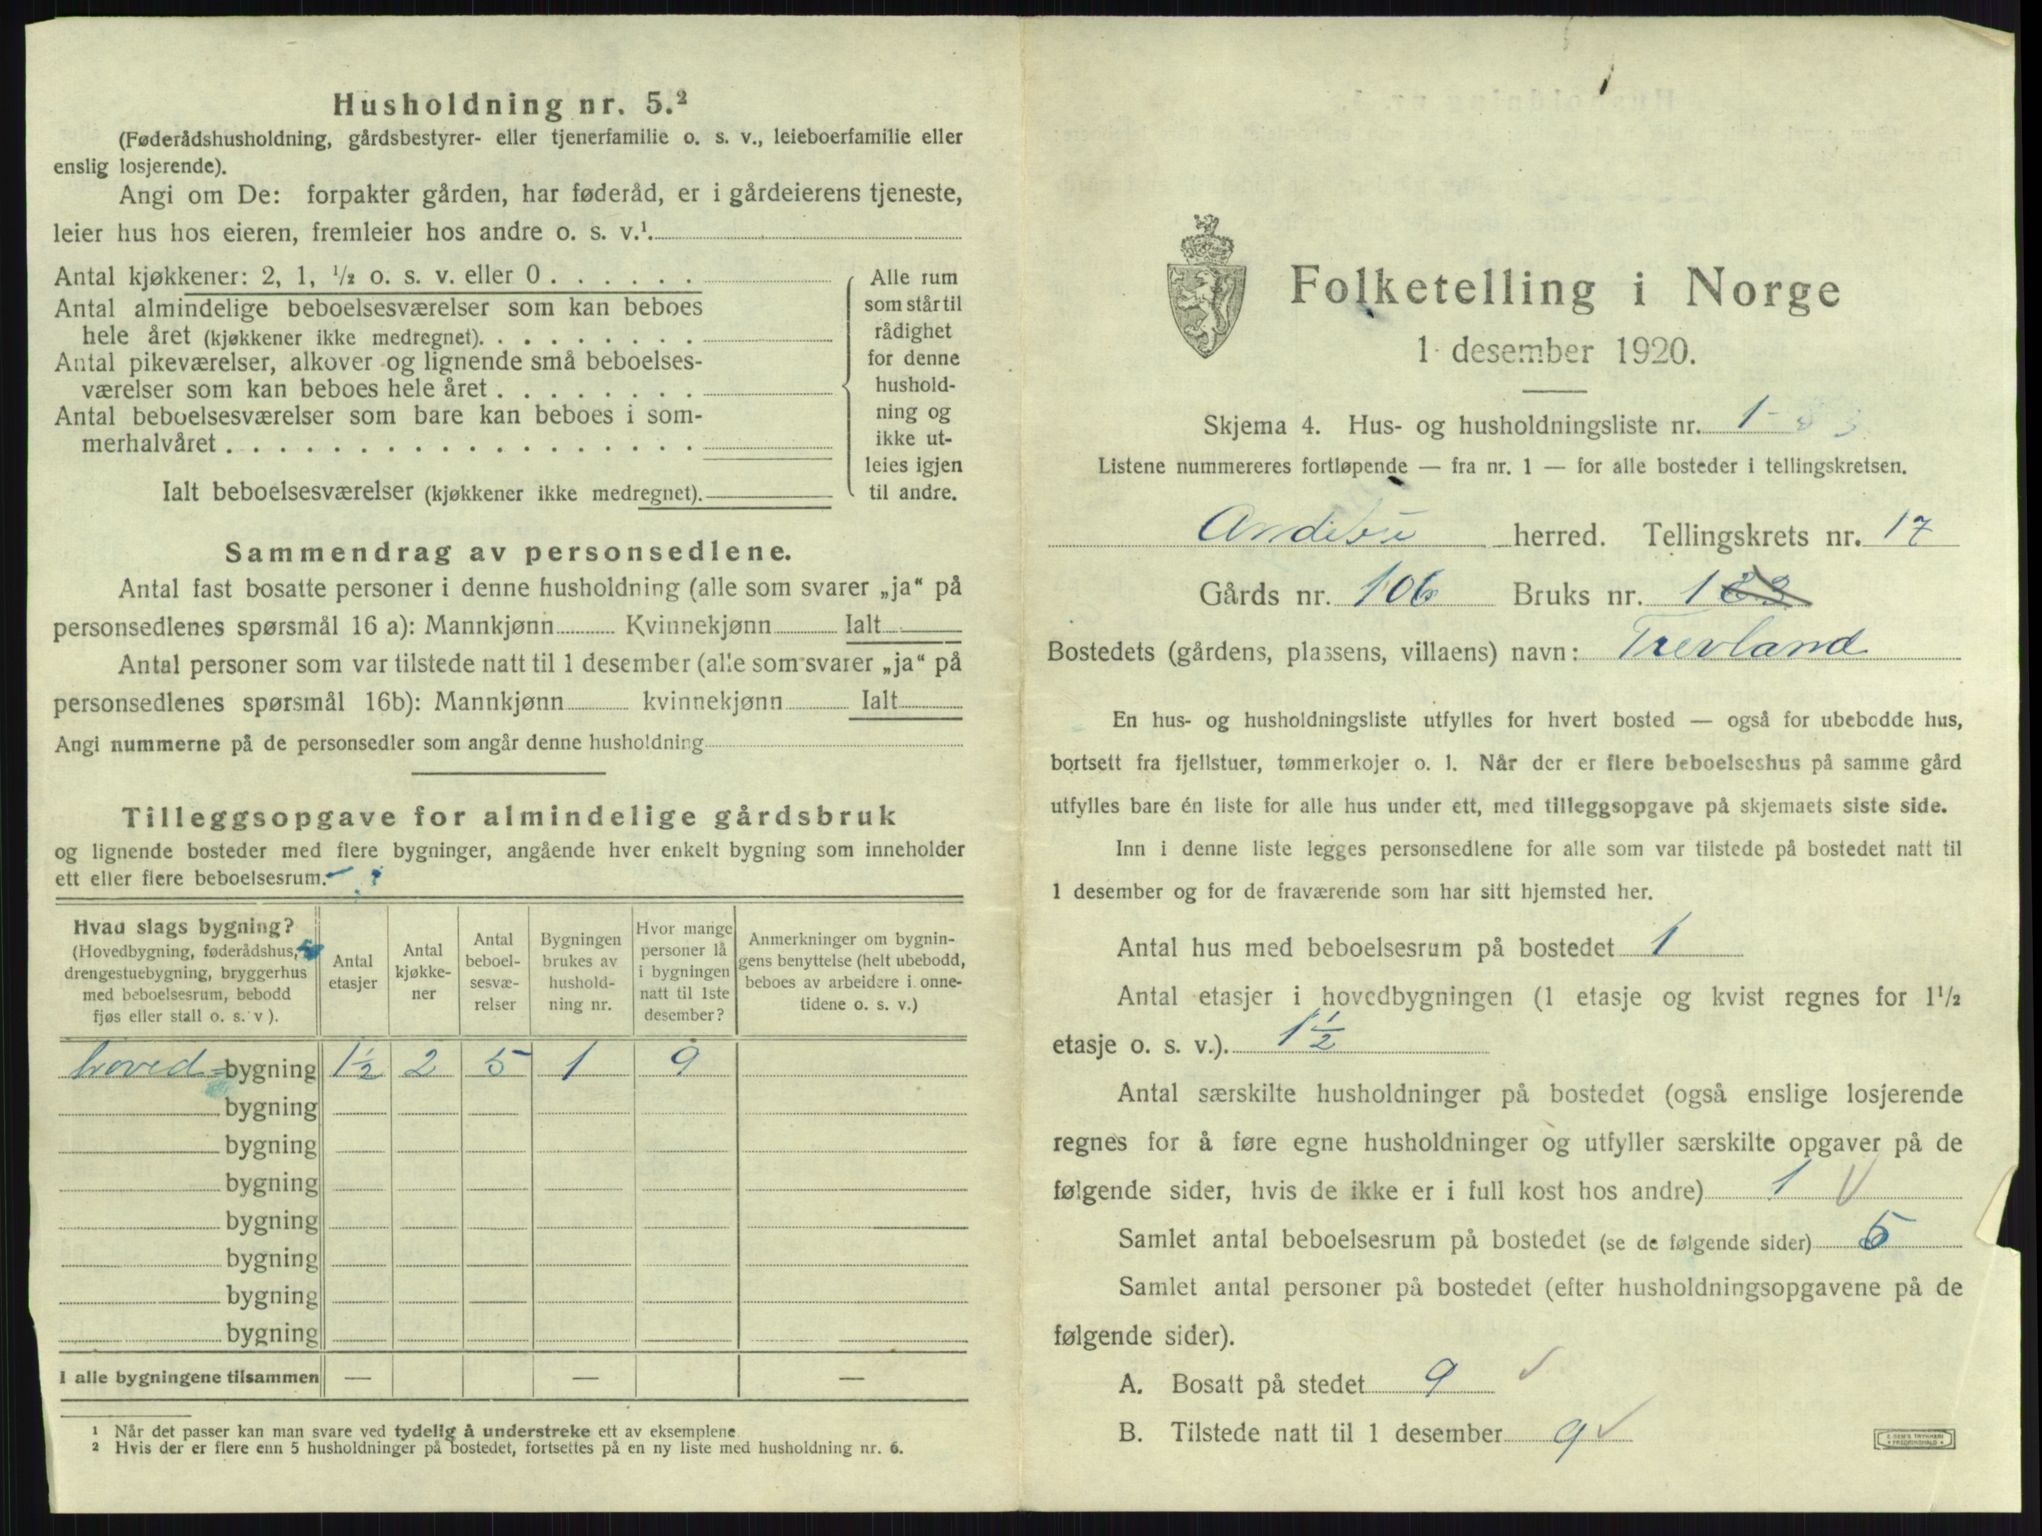 Husholdning nr. 5.²
(Føderådshusholdning, gårdsbestyrer- eller tjenerfamilie o. s. v., leieboerfamilie eller
enslig losjerende).
Angi om De: forpakter gården, har føderåd, er i gårdeierens tjeneste,
leier hus hos eieren, fremleier hos andre o. s. v.¹
Antal kjøkkener: 2, 1, ½ o. s. v. eller 0 . . . . . .
Antal almindelige beboelsesværelser som kan beboes
hele året (kjøkkener ikke medregnet). . . . . . . . .
Antal pikeværelser, alkover og lignende små beboelses-
værelser som kan beboes hele året . . . . . . . .
Antal beboelsesværelser som bare kan beboes i som-
merhalvåret . . . . . . . . . . . . . . . . . .
Ialt beboelsesværelser (kjøkkener ikke medregnet).
Alle rum
som står til
rådighet
for denne
hushold-
ning og
ikke ut-
leies igjen
til andre.
Sammendrag av personsedlene.
Antal fast bosatte personer i denne husholdning (alle som svarer „ja“ på
personsedlenes spørsmål 16 a): Mannkjønn Kvinnekjønn Ialt
Antal personer som var tilstede natt til 1 desember (alle som svarer „ja“ på
personsedlenes spørsmål 16b): Mannkjønn kvinnekjønn Ialt
Angi nummerne på de personsedler som angår denne husholdning
Tilleggsopgave for almindelige gårdsbruk
og lignende bosteder med flere bygninger, angående hver enkelt bygning som inneholder
ett eller flere beboelsesrum.
Hvad slags bygning?
(Hovedbygning, føderådshus,
drengestuebygning, bryggerhus
med beboelsesrum, bebodd
fjøs eller stall o. s. v ).
Antal
etasjer
Antal
kjøkke-
ner
Antal
beboel-
sesvæ-
relser
Bygningen
brukes av
hushold-
ning nr.
Hvor mange
personer lå
i bygningen
natt til 1ste
desember?
Anmerkninger om bygnin-
gens benyttelse (helt ubebodd,
beboes av arbeidere i onne-
tidene o. s. v.)
hoved=bygning 1½ 2 5 1 9
bygning
bygning
bygning
bygning
bygning
bygning
bygning
I alle bygningene tilsammen — — —
¹ Når det passer kan man svare ved tydelig å understreke ett av eksemplene
² Hvis der er flere enn 5 husholdninger på bostedet, fortsettes på en ny liste med husholdning nr. 6.
Folketelling i Norge
1 desember 1920.
Skjema 4. Hus- og husholdningsliste nr. 1-
Listene nummereres fortløpende — fra nr. 1 — for alle bosteder i tellingskretsen.
Andebu herred. Tellingskrets nr. 17
Gårds nr. 106 Bruks nr. 1
Bostedets (gårdens, plassens, villaens) navn: Trevland
En hus- og husholdningsliste utfylles for hvert bosted — også for ubebodde hus,
bortsett fra fjellstuer, tømmerkojer o. l. Når der er flere beboelseshus på samme gård
utfylles bare én liste for alle hus under ett, med tilleggsopgave på skjemaets siste side.
Inn i denne liste legges personsedlene for alle som var tilstede på bostedet natt til
1 desember og for de fraværende som har sitt hjemsted her.
Antal hus med beboelsesrum på bostedet 1
Antal etasjer i hovedbygningen (1 etasje og kvist regnes for 1½
etasje o. s. v.). 1½
Antal særskilte husholdninger på bostedet (også enslige losjerende
regnes for å føre egne husholdninger og utfyller særskilte opgaver på de
følgende sider, hvis de ikke er i full kost hos andre) 1
Samlet antal beboelsesrum på bostedet (se de følgende sider) 5
Samlet antal personer på bostedet (efter husholdningsopgavene på de
følgende sider).
A. Bosatt på stedet 9
B. Tilstede natt til 1 desember 9